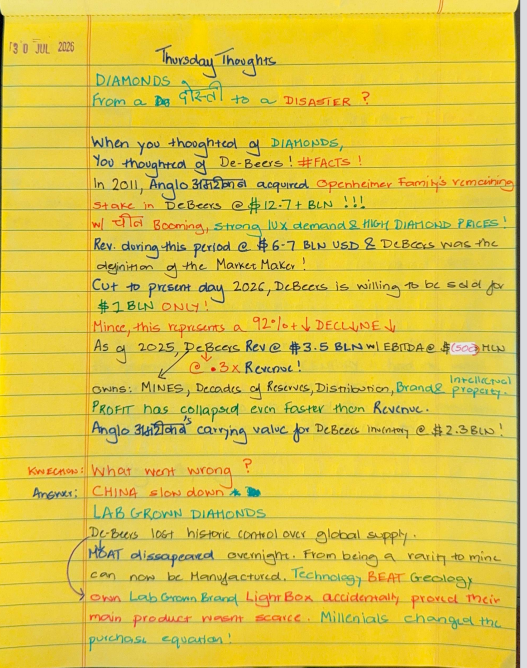 30 JUL 2026
Thursday Thoughts
DIAMONDS
From a दोस्ती to a DISASTER ?
When you thoughted of DIAMONDS,
You thoughted of De-Beers ! #FACTS !
In 2011, Anglo अमेरिकन acquired Openheimer Family's remaining
stake in DeBeers @ $12.7+ BLN !!!
w/ चीन Booming, strong lux demand & HIGH DIAMOND PRICES !
Rev. during this period @ $6-7 BLN USD & DeBeers was the
definition of the Market Maker !
Cut to present day 2026, DeBeers is willing to be sold for
$1 BLN ONLY !
Mince, this represents a 92%+ ↓ DECLINE ↓
As of 2025, DeBeers Rev @ $3.5 BLN w/ EBITDA @ $(500) MLN
@ .3x Revenue !
owns: MINES, Decades of Reserves, Distribution, Brand & Intellectual
property.
PROFIT has collapsed even faster than Revenue.
Anglo अमेरिकन's carrying value for DeBeers inventory @ $2.3 BLN !
KWECHON: What went wrong ?
Answer: CHINA slow down
LAB GROWN DIAMONDS
De-Beers lost historic control over global supply.
MOAT dissapeared overnight. From being a rarity to mine
can now be Manufactured. Technology BEAT Geology
own Lab Grown Brand LightBox accidentally proved their
main product wasnt scarce. Millenials changed the
purchase equation !